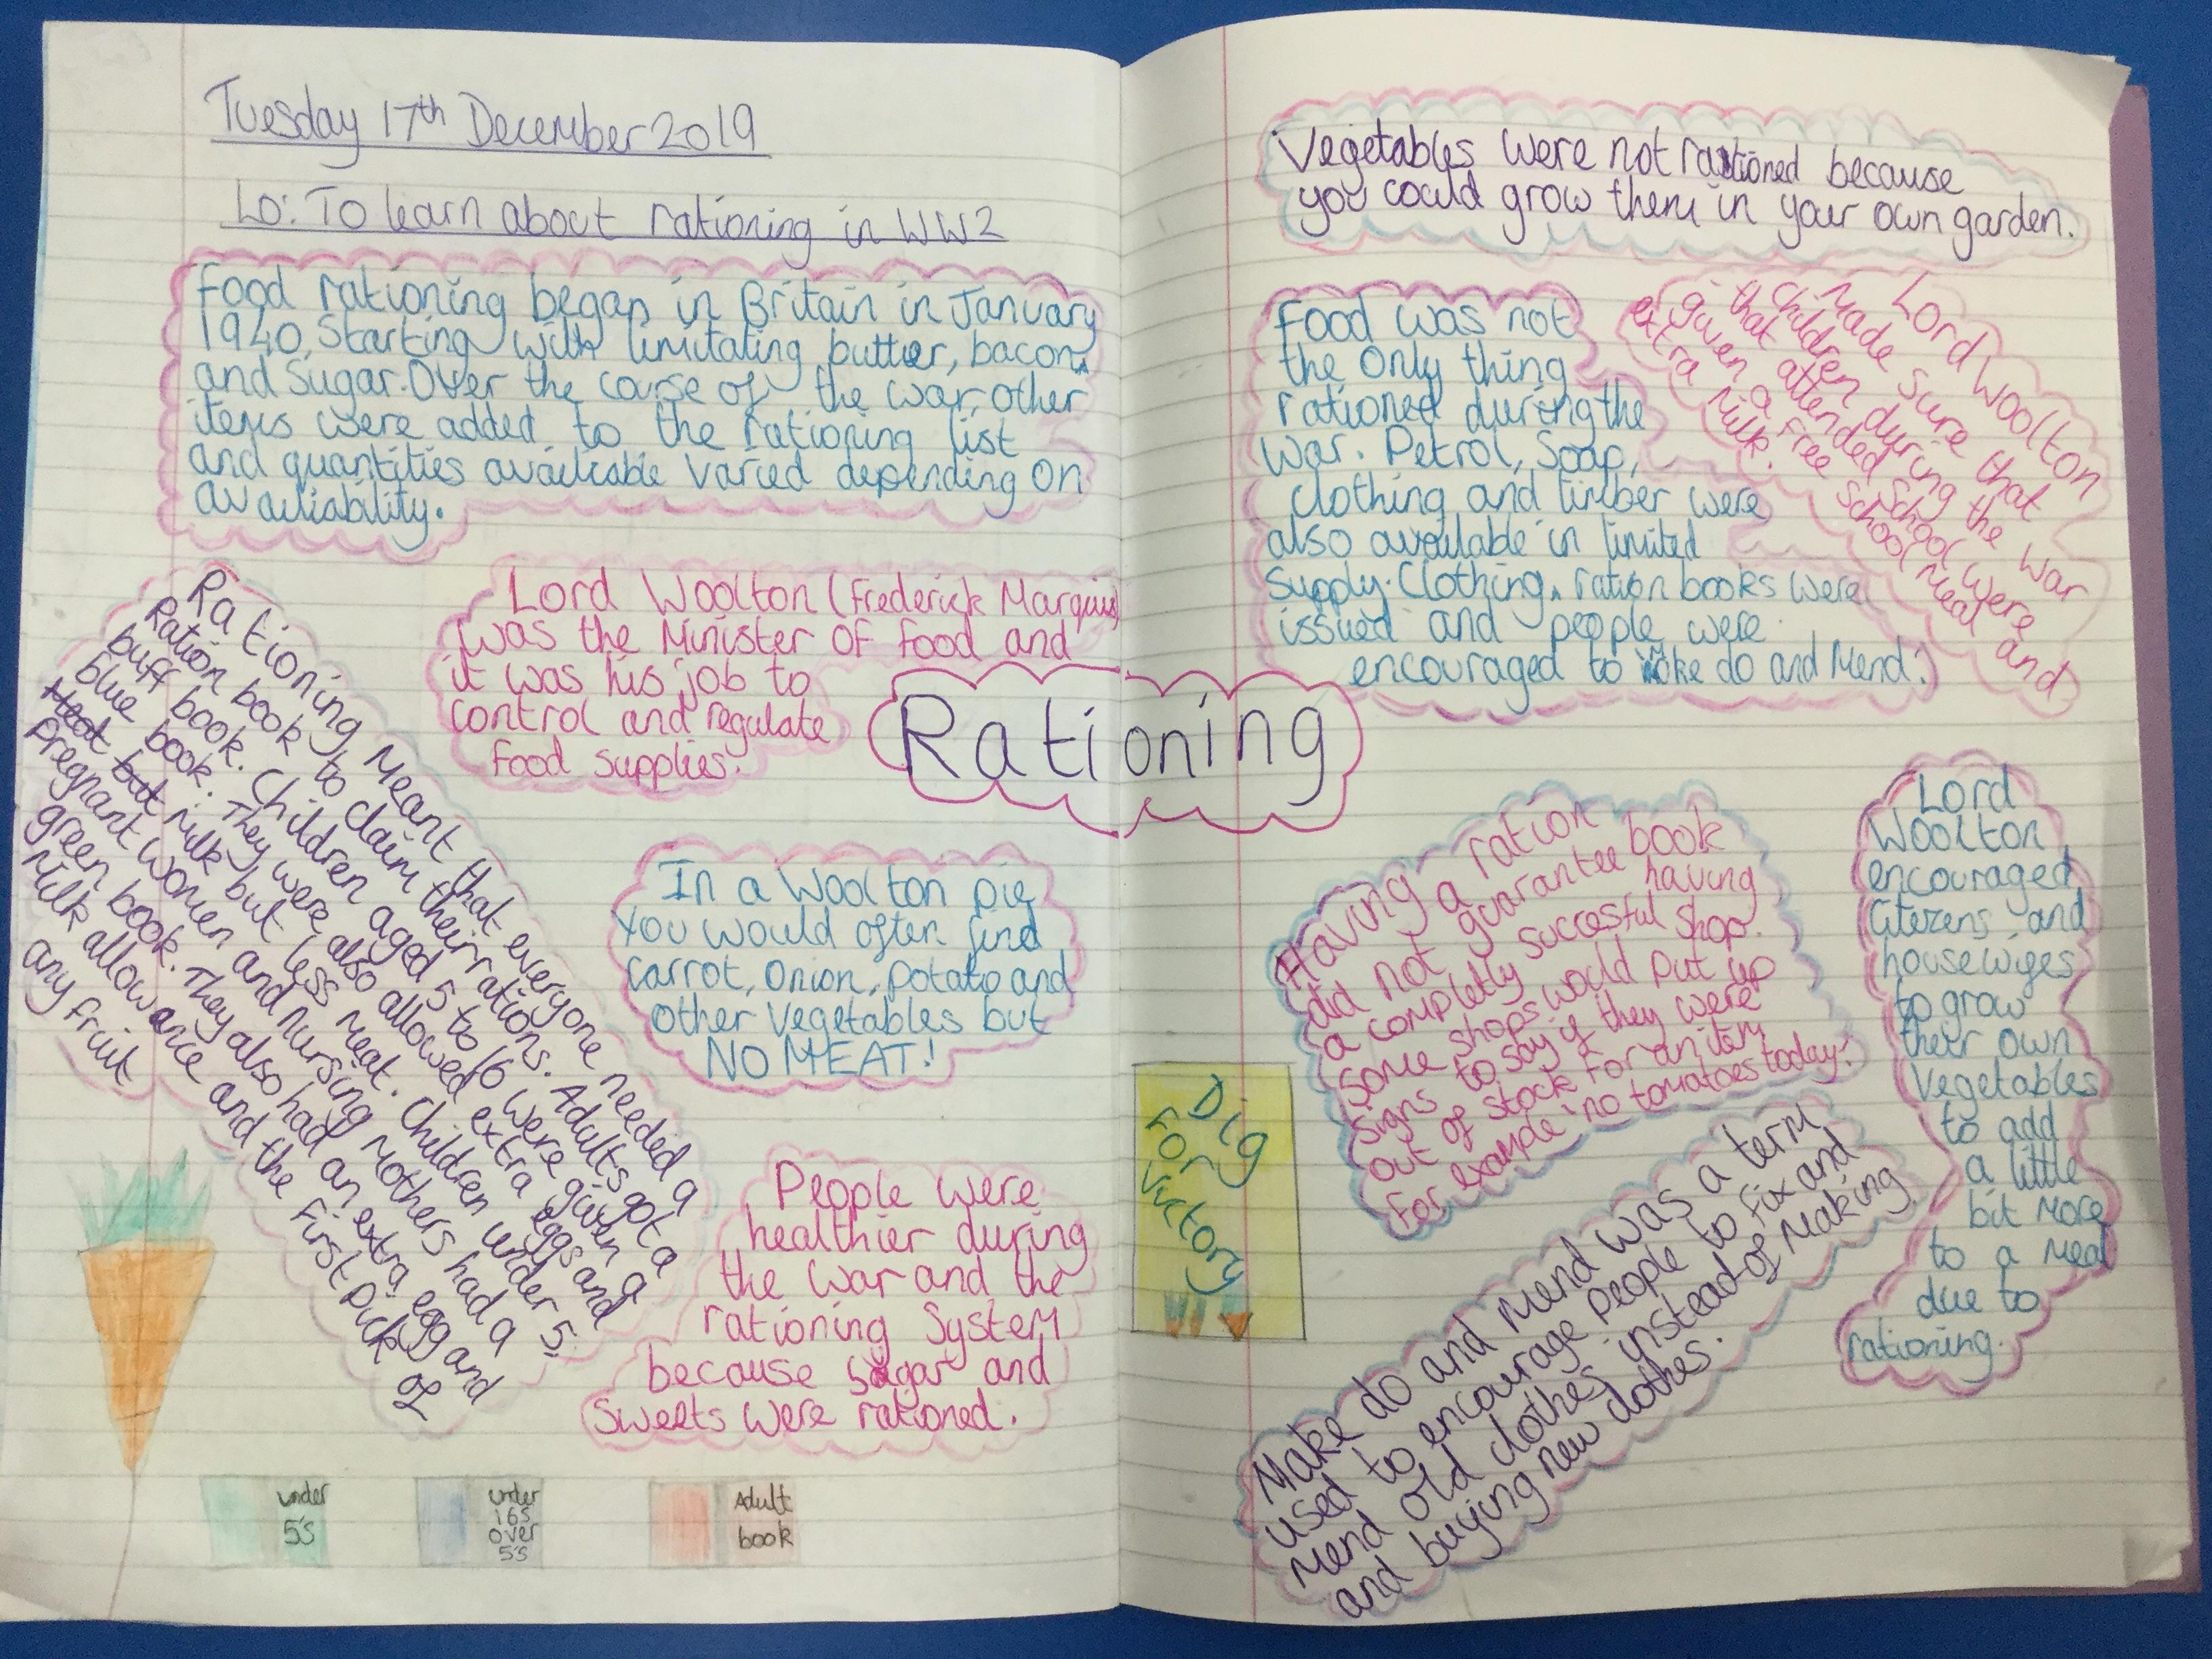 Tuesday 17th December 2019
Lo: To learn about rationing in WW2
Food rationing began in Britain in January
1940, Starting with limitating butter, bacon
and Sugar. Over the course of the war, other
items were added to the rationing list
and quantities available varied depending on
availiability.
Lord Woolton (Frederick Marquis)
was the Minister of Food and
it was his job to
control and regulate
Food Supplies.
Rationing Meant that everyone needed a
Ration book to claim their rations. Adults got a
buff book. Children aged 5 to 16 were given a
blue book. They were also allowed extra eggs and
milk but less meat. Children under 5,
Pregnant women and nursing Mothers had a
green book. They also had an extra egg and
Milk allowance and the First Pick of
any fruit
Rationing
In a Woolton pie
You would often find
carrot, Onion, Potato and
other Vegetables but
NO MEAT!
People were
healthier during
the war and the
rationing System
because sugar and
Sweets were rationed.
under
5's
under
16s
over
5's
Adult
book
Vegetables were not rationed because
you could grow them in your own garden.
Food was not
the only thing
rationed during the
war. Petrol, Soap,
clothing and timber were
also available in limited
Supply. Clothing ration books were
issued and people were
encouraged to make do and Mend!
Lord Woolton
Made sure that
Children during the war
that attended School were
given a free school Meal and
extra Milk.
Having a ration book
did not guarantee having
a completly succesful shop.
Some shops would put up
signs to say if they were
out of stock for an item
for example 'no tomatoes today!
Dig
For
Victory
Lord
Woolton
encouraged
Citezens and
housewives
to grow
their own
Vegetables
to add
a little
bit More
to a Meal
due to
rationing.
Make do and Mend was a term
used to encourage People to Fix and
Mend old clothes instead of Making
and buying new clothes.